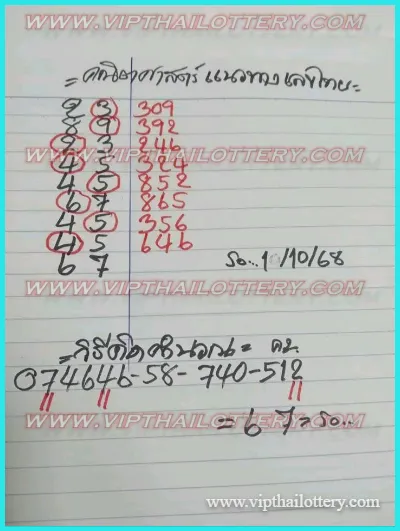 WWW.VIPTHAILOTTERY.COM
= คณิตศาสตร์ แนวทางเลขไทย =
2 3 309
8 9 392
WWW.VIPTHAILOTTERY.COM
2 3 246
4 5 324
4 5 852
6 7 865
4 5 356
4 5 646
6 7
รอ...1 /10/68
WWW.VIPTHAILOTTERY.COM
= วิธีคิดคำนวณ = คน.
074646-58-740-512
WWW.VIPTHAILOTTERY.COM
= 6 7 = รอ..
www.vipthailottery.com